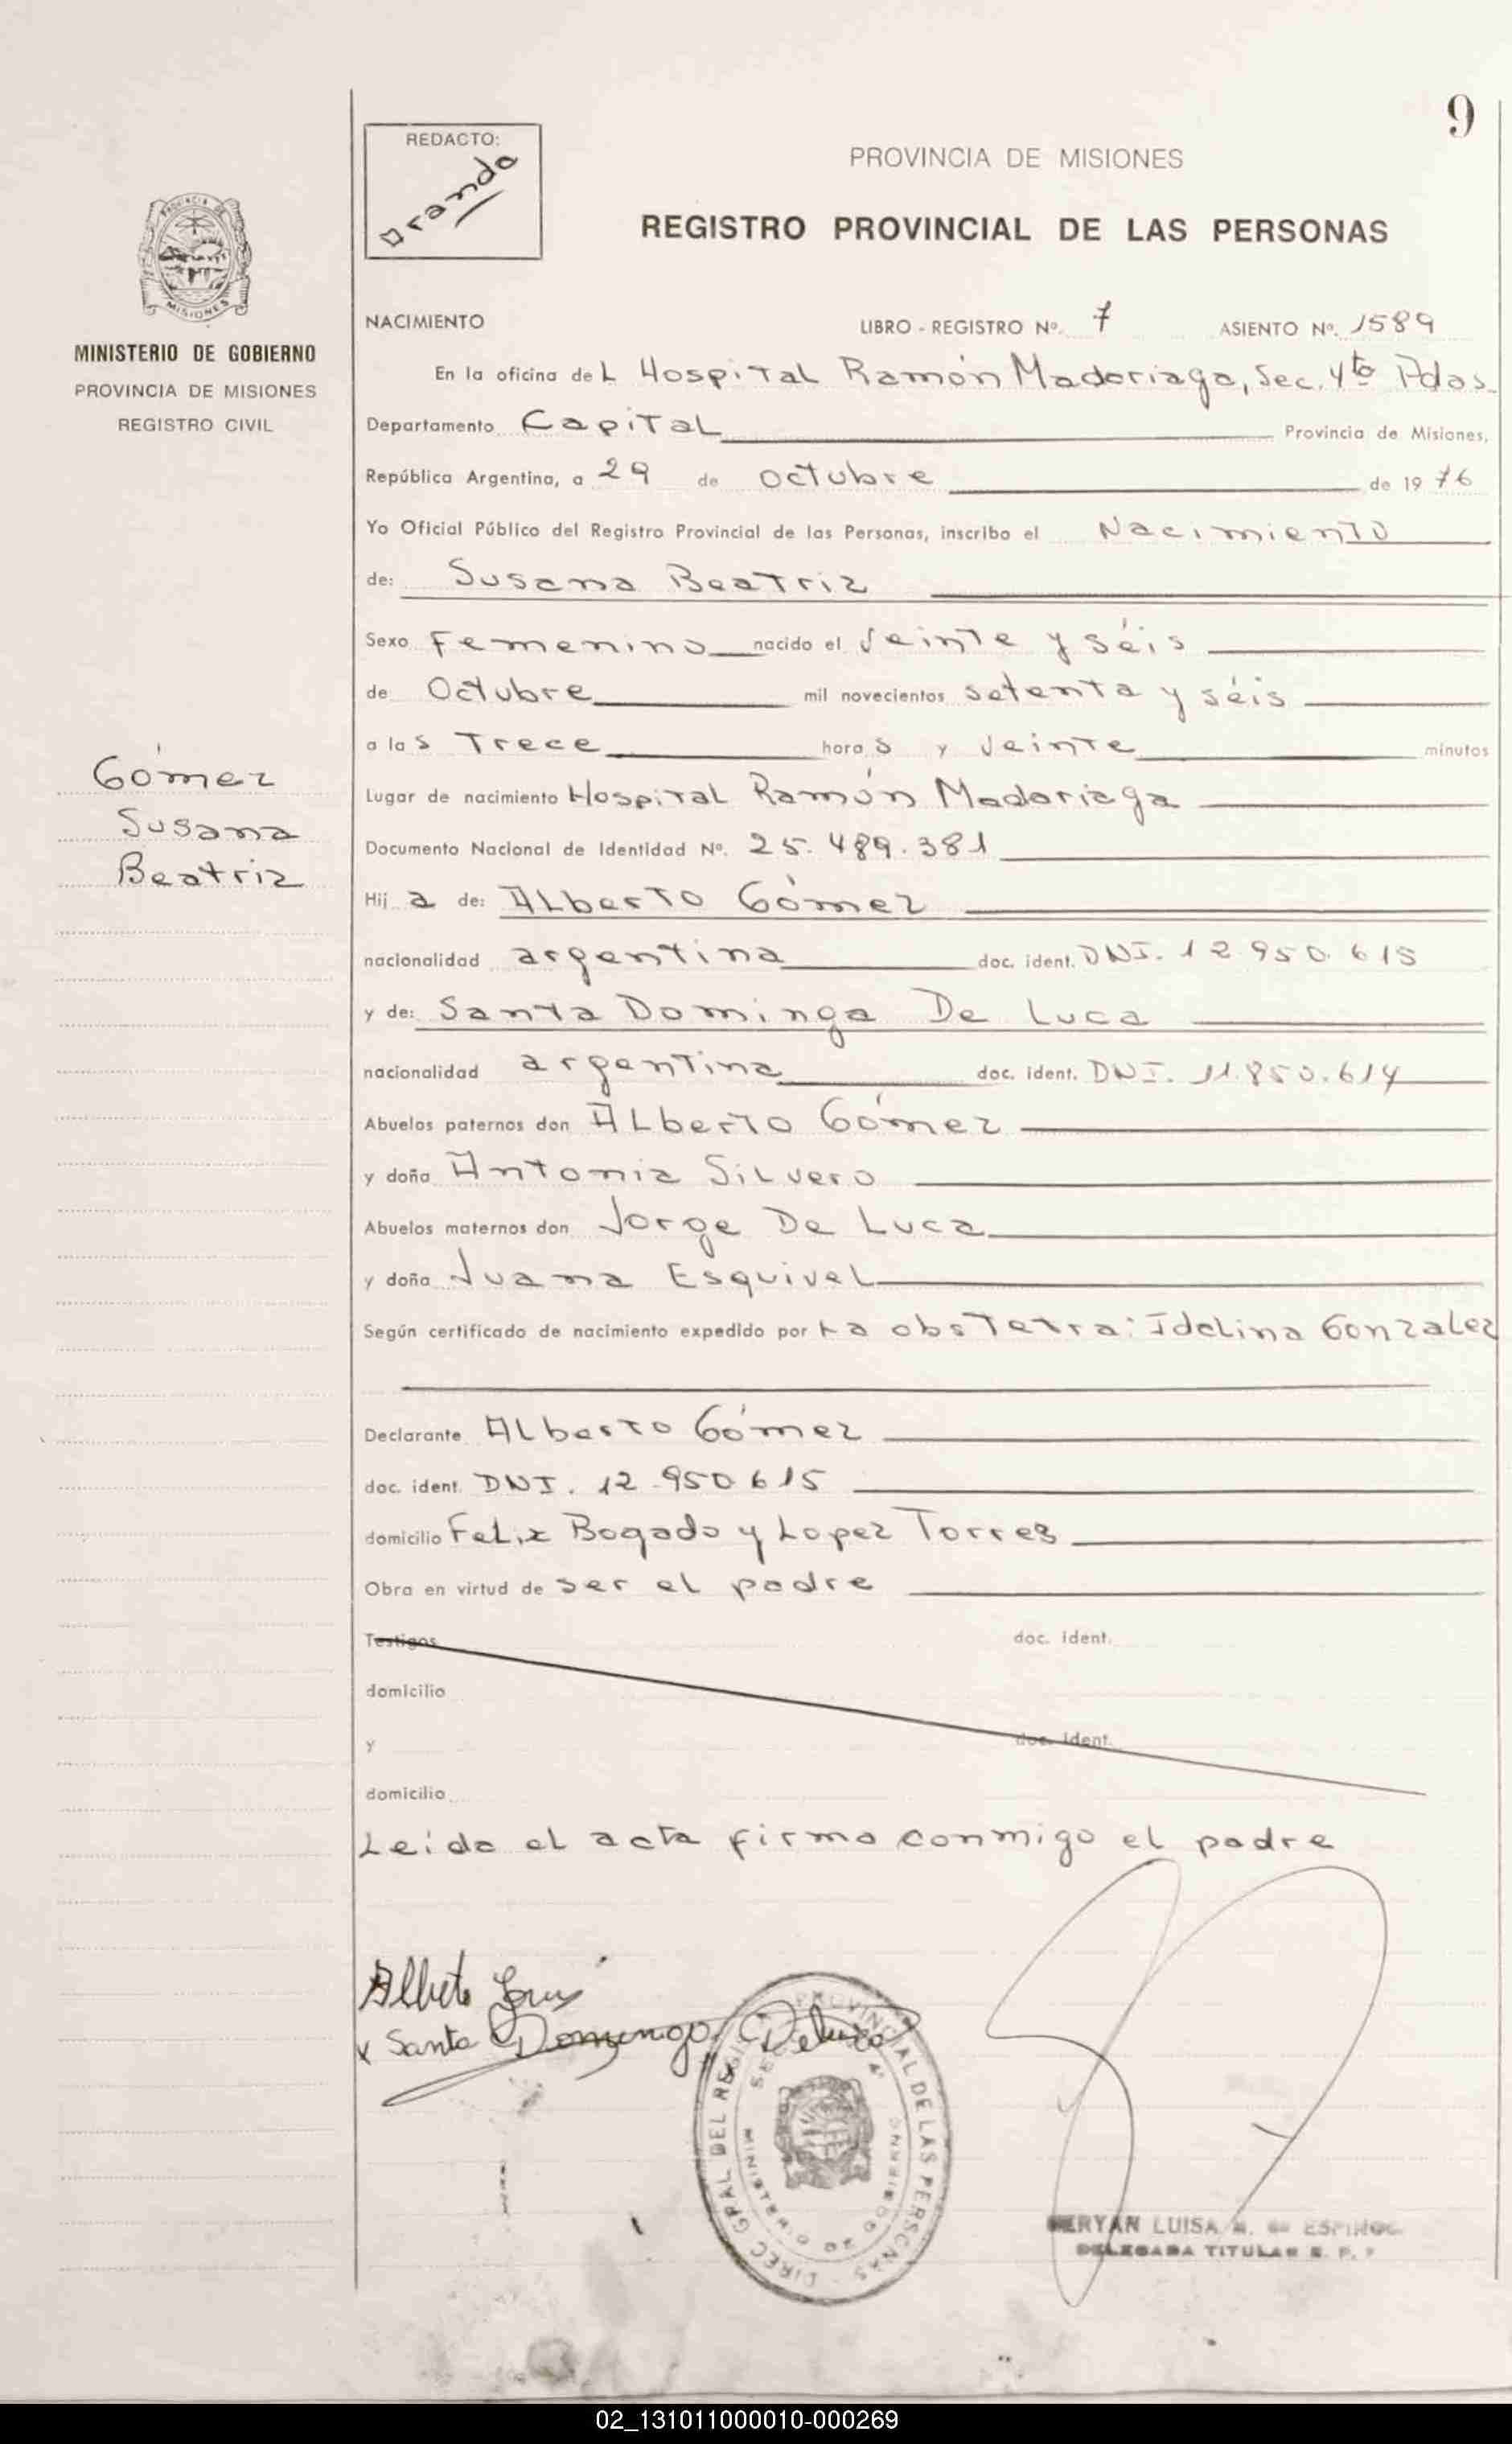 9
REDACTO:
Oranda
PROVINCIA DE MISIONES
REGISTRO PROVINCIAL DE LAS PERSONAS
MINISTERIO DE GOBIERNO
PROVINCIA DE MISIONES
REGISTRO CIVIL
NACIMIENTO LIBRO - REGISTRO Nº. 7 ASIENTO Nº. 1589
En la oficina deL Hospital Ramón Madariaga, Sec. 4ta Pdas.
Departamento Capital Provincia de Misiones,
República Argentina, a 29 de octubre de 1976
Yo Oficial Público del Registro Provincial de las Personas, inscribo el Nacimiento
de: Susana Beatriz
Sexo Femenino nacido el Veinte y séis
de Octubre mil novecientos setenta y séis
a las Trece horas y Veinte minutos
Gómez
Susana
Beatriz
Lugar de nacimiento Hospital Ramón Madariaga
Documento Nacional de Identidad Nº. 25.489.381
Hija de: ALberto Gómez
nacionalidad argentina doc. ident. DNI. 12.950.615
y de: Santa Dominga De Luca
nacionalidad argentina doc. ident. DNI. 11.850.614
Abuelos paternos don ALberto Gómez
y doña Antonia SiLvero
Abuelos maternos don Jorge De Luca
y doña Juana EsquiveL
Según certificado de nacimiento expedido por La obstetra: IdeLina GonzaLez
Declarante ALberto Gómez
doc. ident. DNI. 12.950.615
domicilio FeLix Bogado y Lopez Torres
Obra en virtud de ser eL padre
Testigos doc. ident.
domicilio
y doc. ident.
domicilio
Leida el acta firma conmigo el padre
Santa Dominga Deluca
DIREC. GRAL DEL REGISTRO PROVINCIAL DE LAS PERSONAS
MINISTERIO DE GOBIERNO
LUISA
DELEGADA TITULAR
02_131011000010-000269